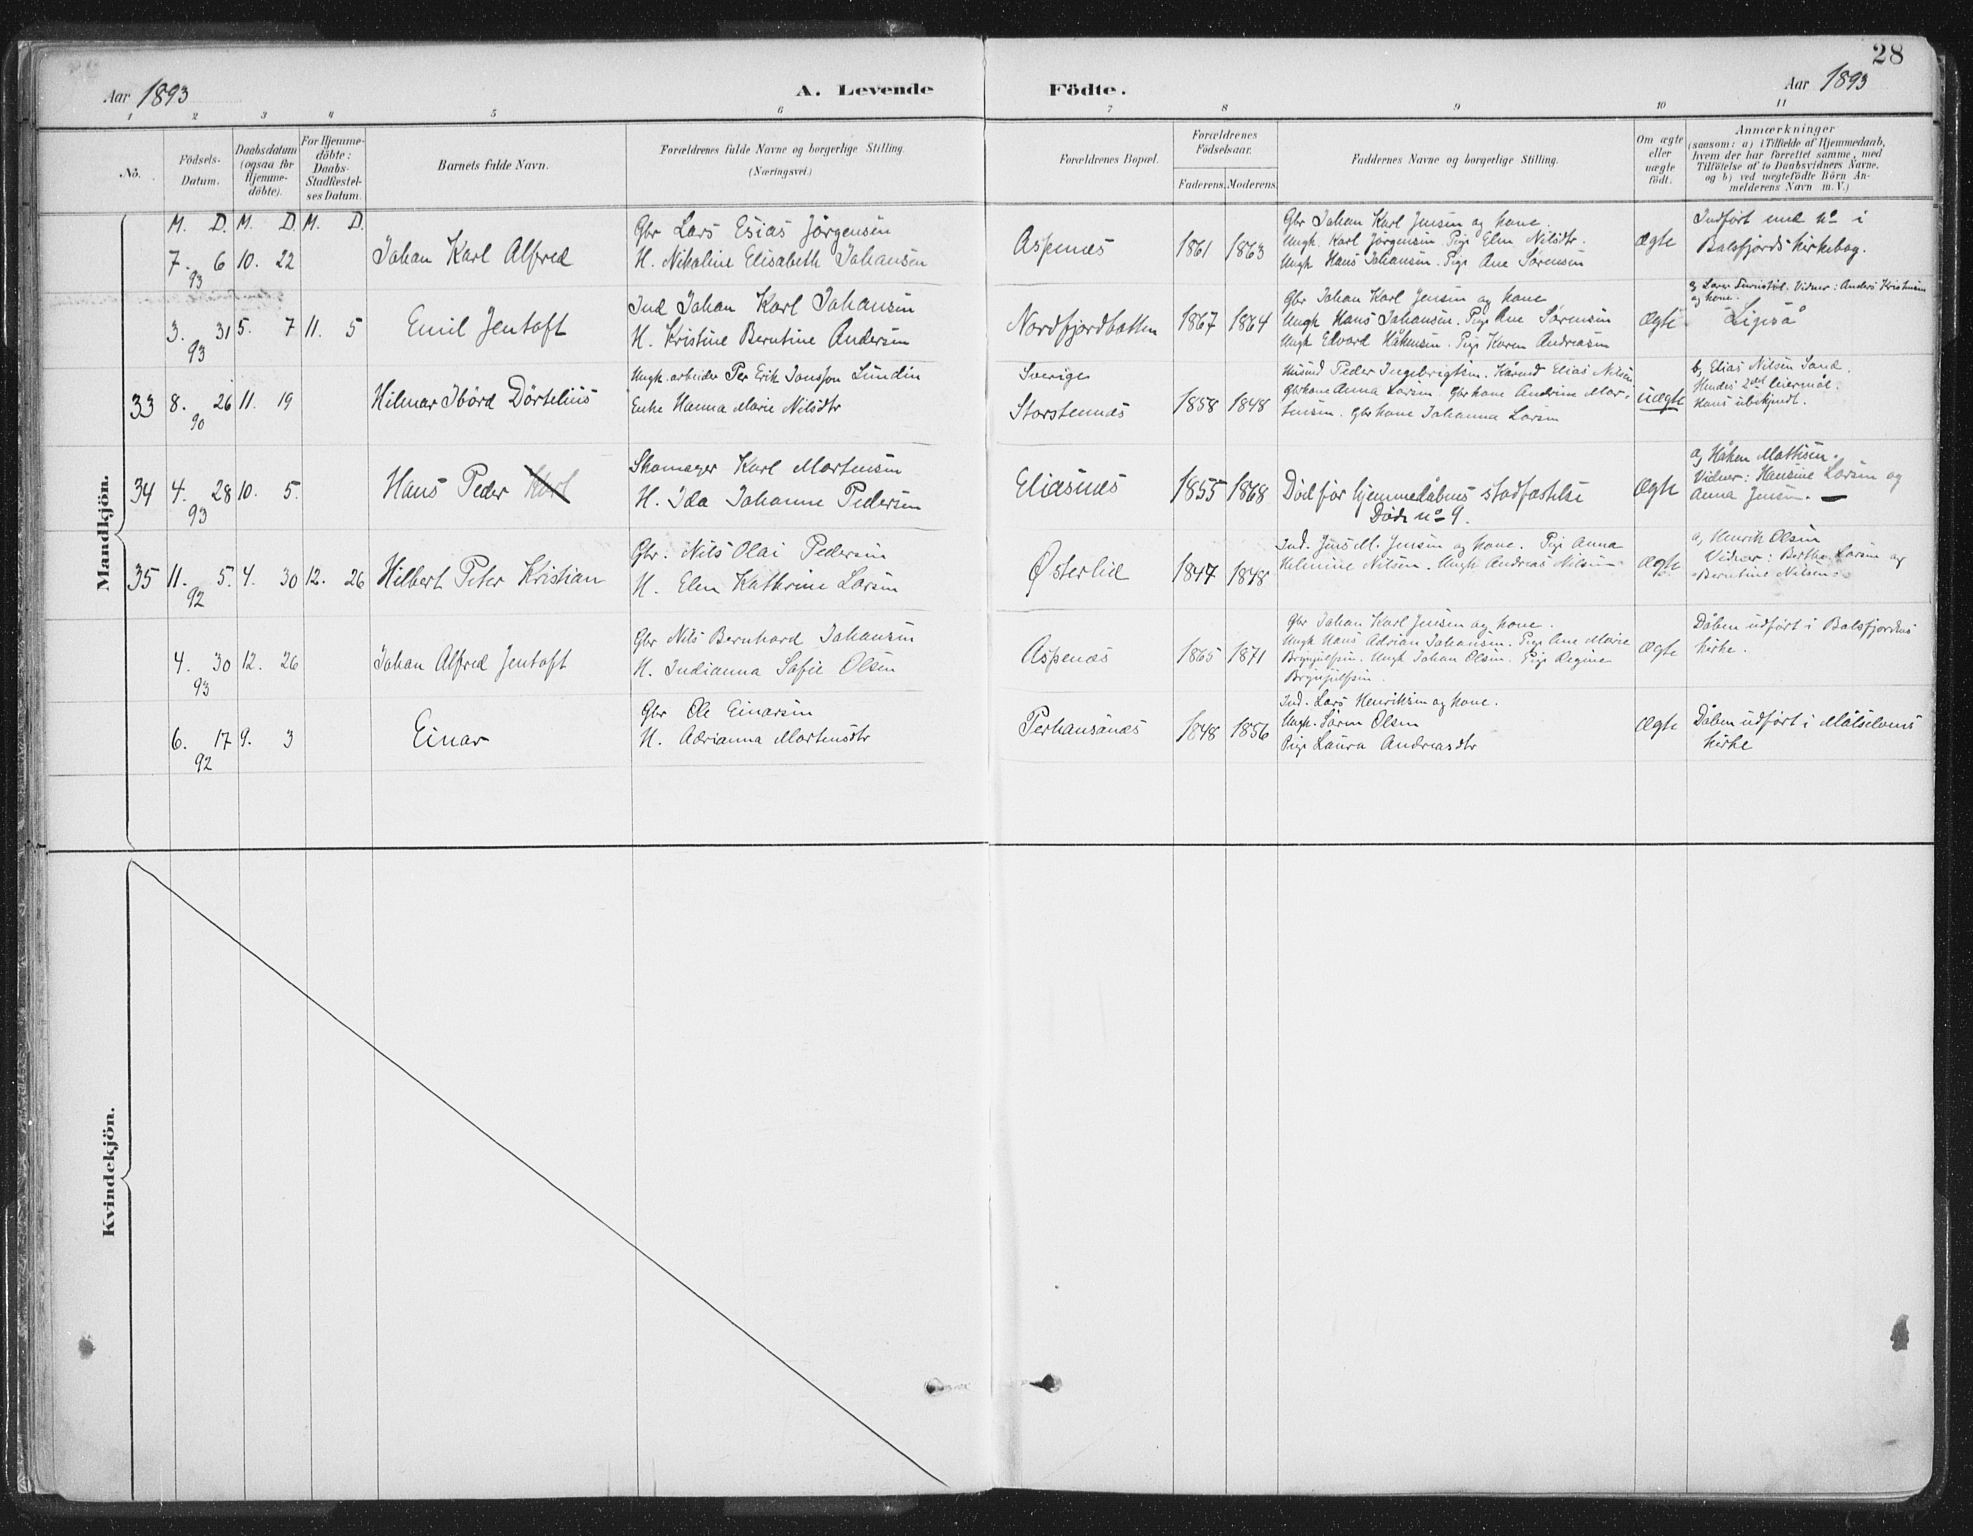 28
Aar 1893
A. Levende
Födte.
Aar 1893
1 2 3 4 5 6 7 8 9 10 11
No.
Födsels-
Datum.
Daabsdatum
(ogsaa for
Hjemme-
döbte).
For Hjemme-
döbte:
Daabs-
Stadfæstel-
ses Datum.
Barnets fulde Navn.
Forældrenes fulde Navne og borgerlige Stilling.
(Næringsvei.)
Forældrenes Bopæl.
Forældrenes
Födselsaar.
Faderens. Moderens.
Faddernes Navne og borgerlige Stilling.
Om ægte
eller
uægte
födt.
Anmærkninger
(saasom: a) i Tilfælde af Hjemmedaab,
hvem der har forrettet samme, med
Tilföielse af to Daabsvidners Navne,
og b) ved uægtefödte Börn An-
melderens Navn m. V.)
Mandkjön.
M. D. M. D. M. D.
7. 6 10. 22
93
Johan Karl Alfred
Gbr Lars Esias Jørgensen
H. Nikoline Elisabeth Johansen
Aspenæs
1861 1863
Gbr Johan Karl Jensen og kone.
Ungk. Karl Jørgensen. Pige Elen Nilsdtr.
Ungk Hans Johansen. Pige Ane Sørensen
Ægte
Indført und No i
Balsfjords kirkebog.
3. 31 5. 7 11. 5
93
Emil Jentoft
Ind Johan Karl Johansen
H. Kristine Berntine Andersen
Nordfjordbotten
1867 1864
Gbr Johan Karl Jensen og kone
Ungk Hans Johansen. Pige Ane Sørensen
Ungk Edvard Håkensen. Pige Karen Andreasen
Ægte
Vidner: Anders Kristensen
og kone.
Ligeså
33 8. 26 11. 19
90
Hilmar Ibård Dørtelius
Ungk. arbeider Per Erik Jonsson Lundin
Enke Hanna Marie Nilsdtr
Sverige
Storstennæs
1858 1848
Husmd Peder Ingebrigtsen. Kårmd Elias Nilsen
Gbrkone Anna Larsen. Gbrkone Andrine Mor-
tensen. Gbrkone Johanna Larsen
uægte
b, Elias Nilsen Sand.
Hendes 2det leiermål.
Hans ubekjendt.
34 4. 28 10. 5.
93
Hans Peder Karl
Skomager Karl Mortensen
H. Ida Johanne Pedersen
Eliasnæs
1855 1868
Død før hjemmedåbens stadfæstelse
Døde No 9.
Ægte
a, Håken Mathisen.
Vidner: Hansine Larsen og
Anna Jensen. —
35 11. 5. 4. 30 12. 26
92
Hilbert Peter Kristian
Gbr. Nils Olai Pedersen
H. Elen Kathrine Larsen
Østerlid
1847 1848
Ind. Jens M. Jensen og kone. Pige Anna
Helmine Nilsen. Ungk Andreas Nilsen
Ægte
a, Henrik Olsen
Vidner: Berthe Larsen og
Berntine Nilsen.
4. 30 12. 26
93
Johan Alfred Jentoft
Gbr Nils Bernhard Johansen
H. Indianna Sofie Olsen
Aspenæs
1865 1871
Gbr Johan Karl Jensen og kone.
Ungk Hans Adrian Johansen. Pige Ane Marie
Brynjulfsen. Ungk Johan Olsen. Pige Regine
Brynjulfsen.
Ægte
Dåben udført i Balsfjordens
kirke.
6. 17 9. 3
92
Einar
Gbr Ole Einarsen
H. Adrianna Mortensdtr
Perhansånæs
1848 1856
Ind. Lars Henriksen og kone.
Ungk. Søren Olsen
Pige Laura Andreasdtr
Ægte
Dåben udført i Målselvens
kirke
Kvindekjön.